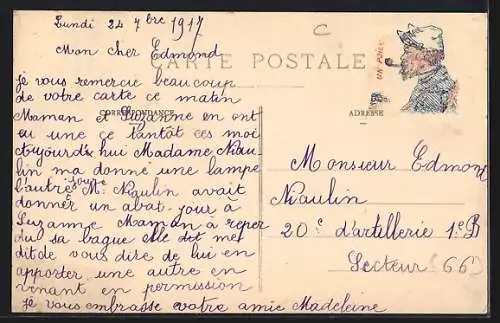 Lundi 24 7bre 1917
C
Mon cher Edmond
CARTE POSTALE
UN POILU
je vous remercie beaucoup
de votre carte ce matin
CORRESPONDANCE
ADRESSE
Maman et Suzanne en ont
eu une ce tantôt ces moi
Aujourd'hui Madame Niau
lin ma donné une lampe
l'autre jour Mr Niaulin avait
donner un abat-jour à
Suzanne Maman à reper
du sa bague elle dit me
dit de vous dire de lui en
apporter une autre en
venant en permission
je vous embrasse votre amie Madeleine
Monsieur Edmond
Niaulin
20e d'artillerie 1e B
Secteur (66)